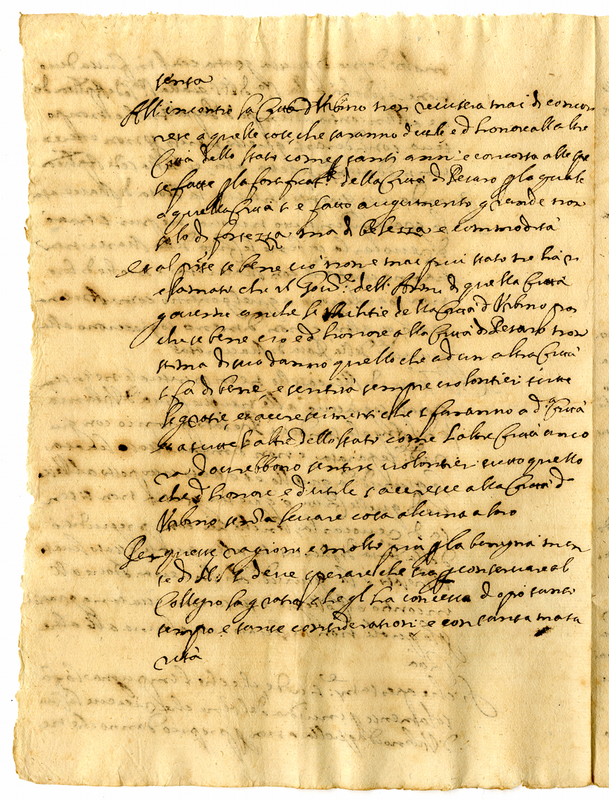 senza
All'incontro la Città d'Urbino non recuserà mai di concor
rere a quelle cose, che saranno d'utile ed honore alla altre
Città dello Stato, come tanti anni è concorsa alle spe
se fatte p la fortificat.ne della Città di Pesaro p la quale
a quella Città s'è fatto augumento grande non
solo di fortezza ma di belezza e commodità
Et al se bene ciò non è mai più stato ne ha
che il Gov.re dell'Armi di quella Città
governi anche le Militie della Città d'Urbino
che se bene ciò ed honore alla Città di Pesaro non
stima di suo danno quello che ad un altra Città
si fà di bene, e sentirà sempre volontieri tutte
le gratie, et accrescimenti che si faranno a d.a Città
et a tutte l'altre dello Stato come l'altre Città anco
ra dovrebbono sentire volontieri tutto quello
che d'honore e d'utile s'accresce alla Città d
Urbino senza levare cosa alcuna a loro
Per queste ragioni e molto più p la benigna men
te di deve sperare che sia p conservare al
Collegio la gratia, che gl'ha concessa dopò tanto
tempo e tante considerationi e con tanta matu
rità